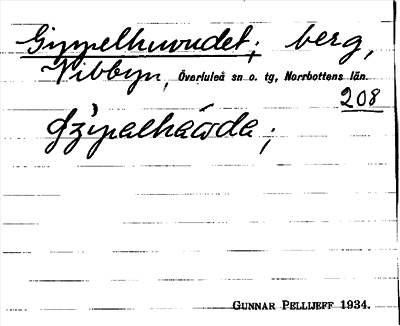 Gyppelhuvudet; berg,
Vibbyn, Överluleå sn o. tg, Norrbottens län.
208
GUNNAR PELLIJEFF 1934.